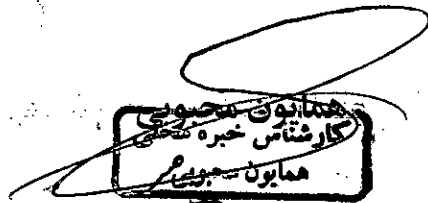 همایون محبوبی
کارشناس خبره محلی
همایون محبوبی